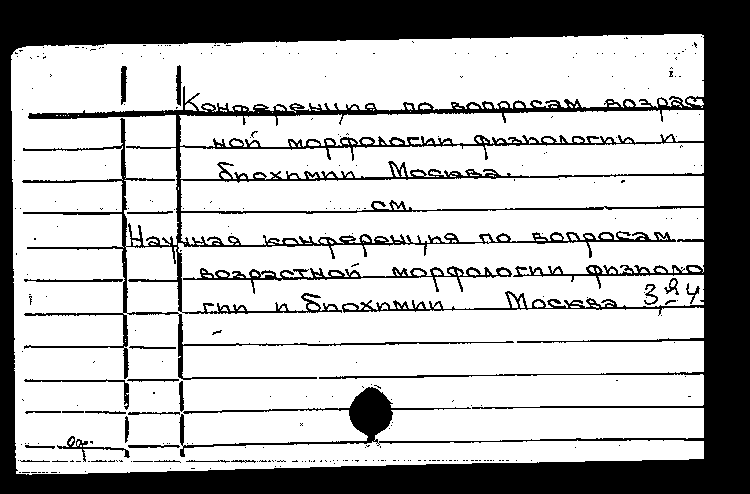 Конференция по вопросам возраст
ной морфологии, физиологии и
биохимии. Москва.
см.
Научная конференция по вопросам
возрастной морфологии, физиоло
гии и биохимии. Москва. 3,